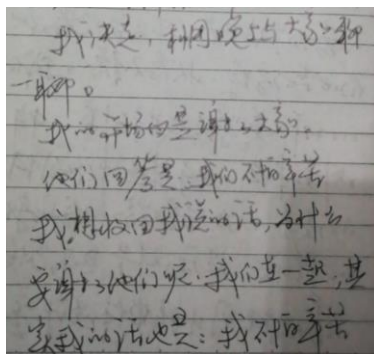 我决定，利用晚上与大家聊
一聊。
我的开场白是谢谢大家。
他们回答是，我们不怕辛苦
我想收回我说的话，为什么
要谢谢他们呢。我们在一起，其
实我的话也是：我不怕辛苦